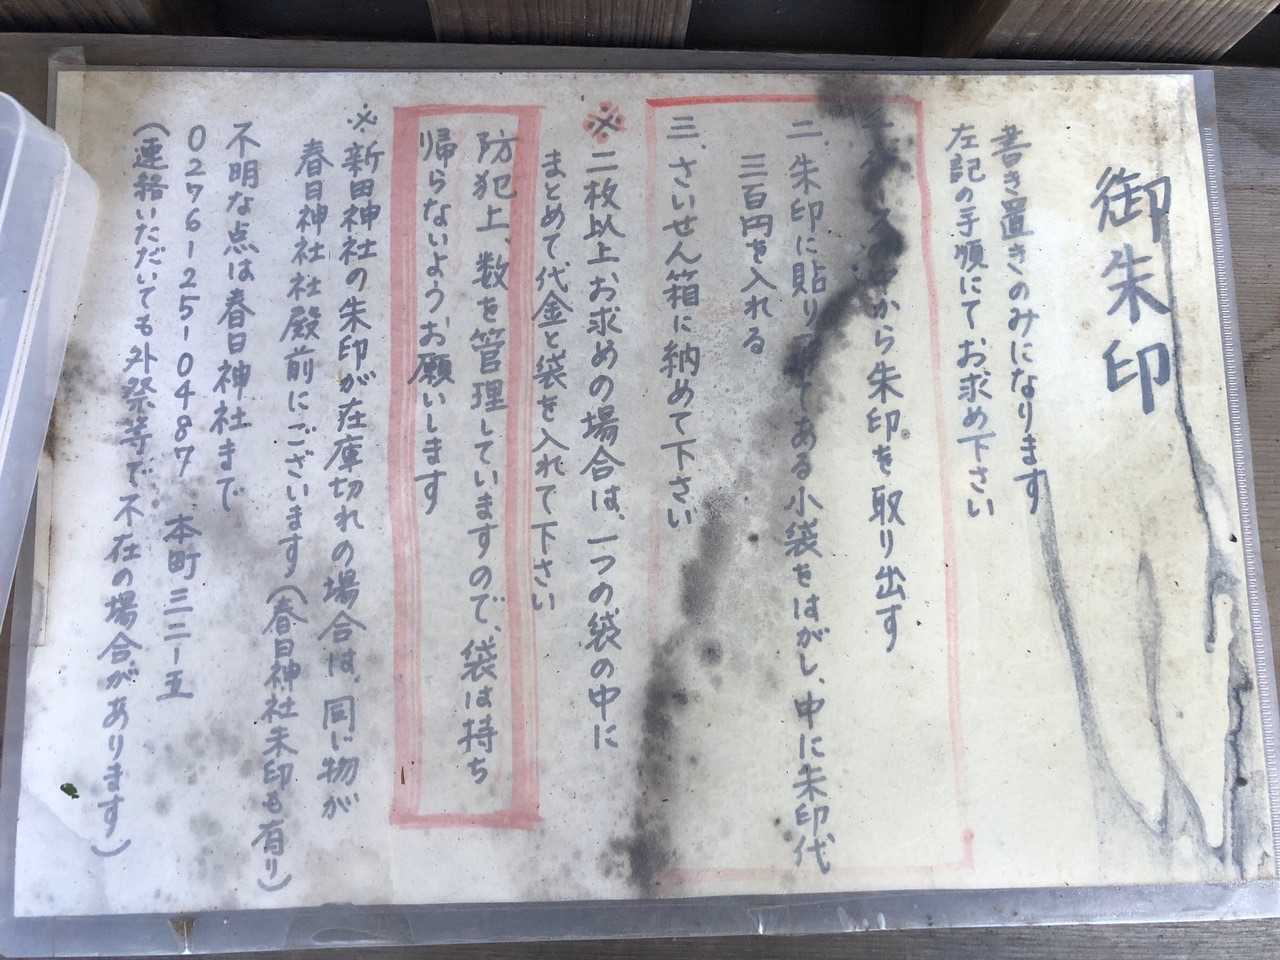 御朱印
書き置きのみになります
左記の手順にてお求め下さい
から朱印を取り出す
二、朱印に貼りてある小袋をはがし、中に朱印代
三百円を入れる
三、さいせん箱に納めて下さい
※二枚以上お求めの場合は、一つの袋の中に
まとめて代金と袋を入れて下さい
防犯上、数を管理していますので、袋は持ち
帰らないようお願いします
※新田神社の朱印が在庫切れの場合は、同じ物が
春日神社社殿前にございます(春日神社朱印も有り)
不明な点は春日神社まで
0276-25-0487 本町三二-五
(連絡いただいても外祭等で不在の場合があります)